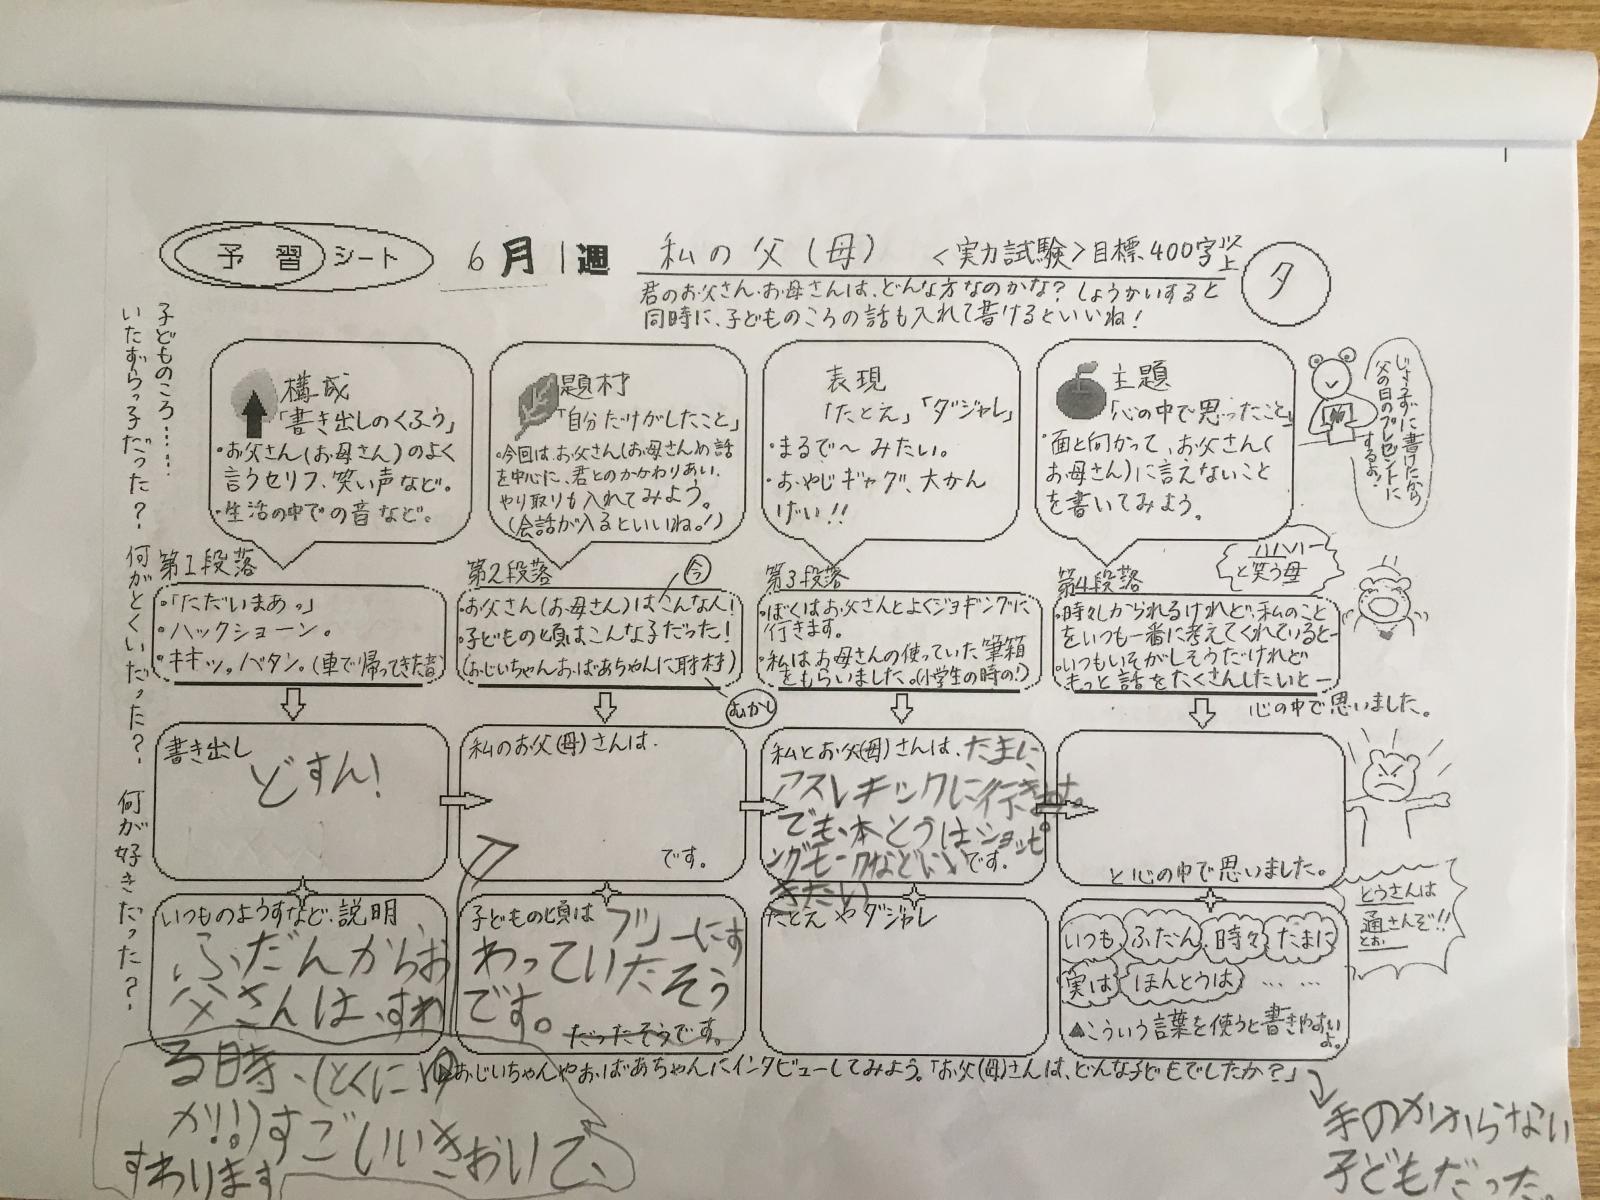 予習シート
6月1週
私の父(母)
<実力試験>目標、400字以上
夕
君のお父さん、お母さんは、どんな方なのかな?しょうかいすると
同時に、子どものころの話も入れて書けるといいね!
子どものころ……
いたずらっ子だった?何がとくいだった?何が好きだった?
構成
「書き出しのくふう」
・お父さん(お母さん)のよく
言うセリフ、笑い声など。
・生活の中での音など。
題材
「自分だけがしたこと」
・今回は、お父さん(お母さん)の話
を中心に、君とのかかわりあい、
やり取りも入れてみよう。
(会話が入るといいね。!)
表現
「たとえ」「ダジャレ」
・まるで〜みたい。
・おやじギャグ、大かん
げい!!
主題
「心の中で思ったこと」
・面と向かって、お父さん(
お母さん)に言えないこと
を書いてみよう。
じょうずに書けたら
父の日のプレゼントに
するよ!
第1段落
・「ただいまあ。」
・ハックショーン。
・キキッ。バタン。(車で帰ってきた音)
第2段落
今
・お父さん(お母さん)はこんな人!
・子どもの頃はこんな子だった!
(おじいちゃんおばあちゃんに取材)
むかし
第3段落
・ぼくはお父さんとよくジョギングに
行きます。
・私はお母さんの使っていた筆箱
をもらいました。(小学生の時の!)
第4段落
ハハハハー
と笑う母
・時々しかられるけれど、私のこと
をいつも一番に考えてくれていると―
・いつもいそがしそうだけれど
もっと話をたくさんしたいと―
心の中で思いました。
書き出し
どすん!
私のお父(母)さんは、
です。
私とお父(母)さんは、たまに、
アスレチックに行きます。
でも、本とうはショッピ
ングモールなどにいきたい
です。
と心の中で思いました。
とうさんは
通さんぞ!!
とお
いつものようすなど、説明
ふだんからお
父さんは、すわ
る時、(とくに
か!!。)すごいいきおいで、
すわります
子どもの頃は
フツーにす
わっていたそう
です。
だったそうです。
たとえやダジャレ
いつも ふだん 時々 たまに
実は ほんとうは ……
▲こういう言葉を使うと書きやすいよ。
おじいちゃんやおばあちゃんにインタビューしてみよう。「お父(母)さんは、どんな子どもでしたか?」
手のかからない
子どもだった。